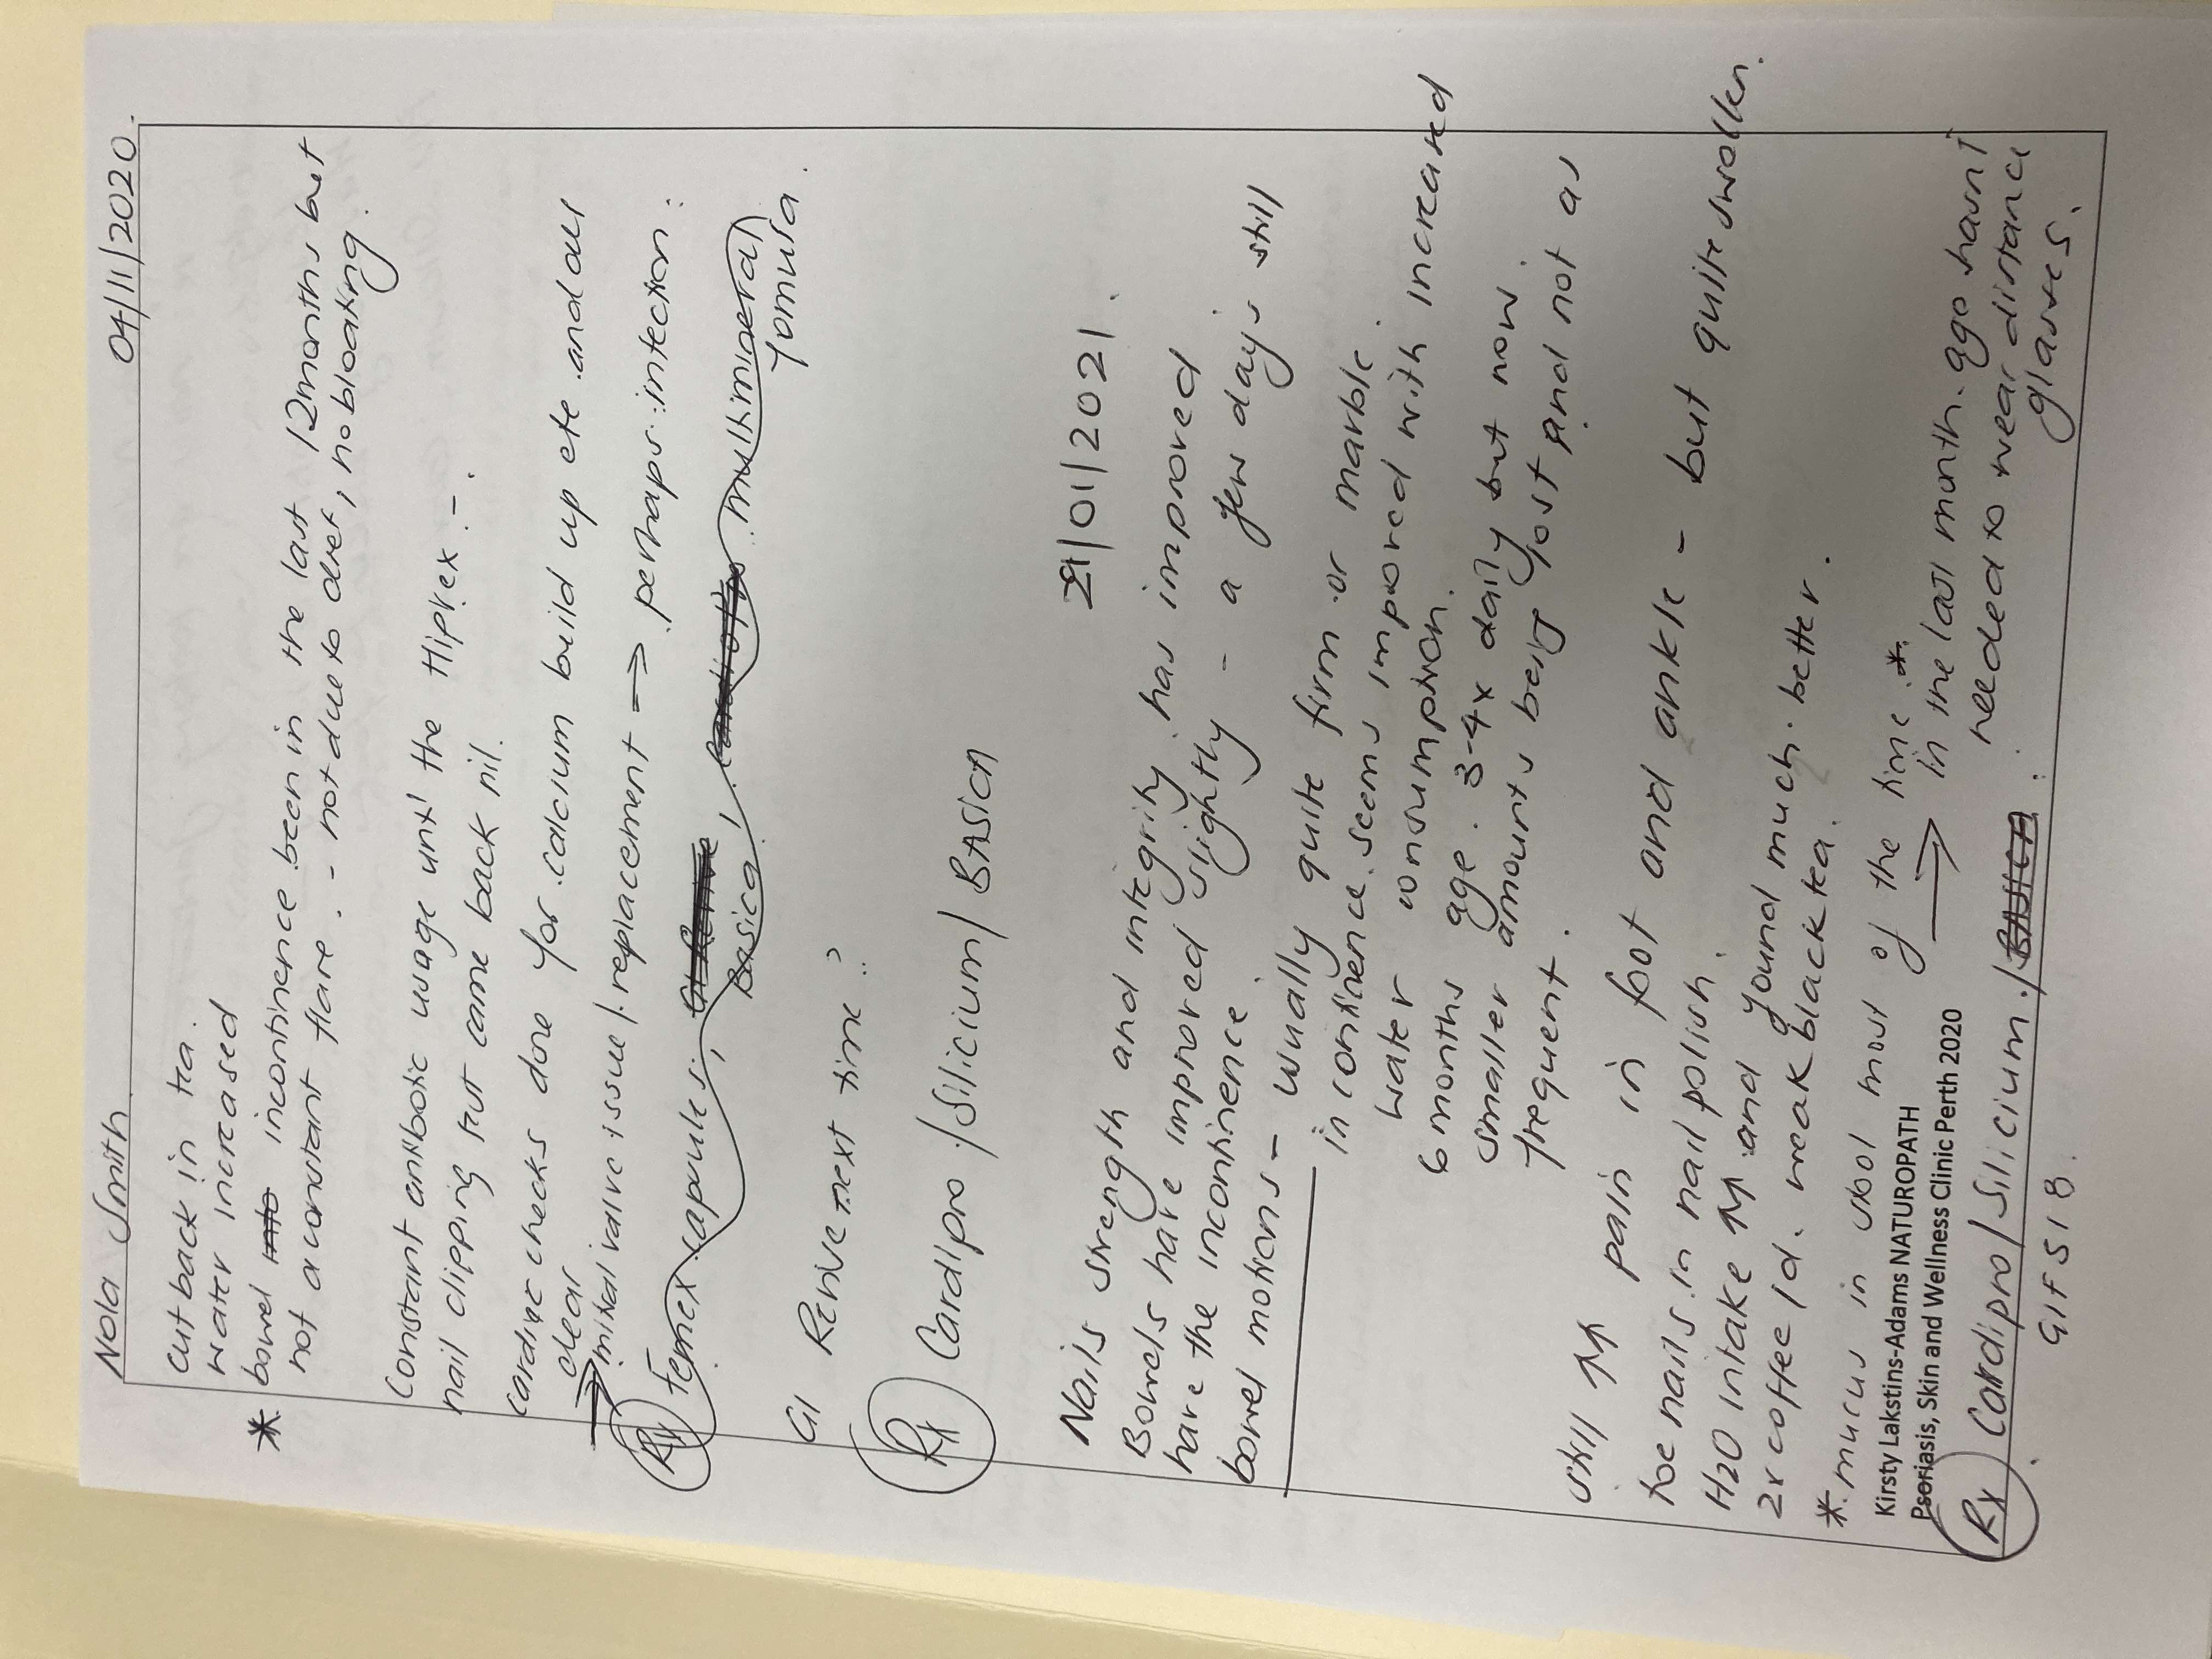 Nola Smith 04/11/2020.
cut back in tea.
water increased
* bowel incontinence been in the last 12months but
not a constant flare. - not due to diet, no bloating.
Constant antibotic usage until the Hiprex. -.
nail clipping but came back nil.
cardiac checks done for calcium build up etc and all
clear
mitral valve issue / replacement → perhaps infection.
Rx Femex capsules, Basica, multimineral
fomula
GI Revive next time?
Rx Cardipro / Silicium / BASICA
21/01/2021.
Nails strength and integrity has improved
Bowels have improved slightly - a few days still
have the incontinence.
bowel motions - usually quite firm or marble.
incontinence seems improved with increased
water consumption.
6 months age. 3-4x daily but now
smaller amounts being lost and not as
frequent.
still ↑ pain in foot and ankle - but quite swollen.
toe nails in nail polish.
H2O intake ↑ and found much better
2x coffee /d. weak black tea.
* mucus in stool most of the time *
→ in the last month. ago hasnt
needed to wear distance
glasses.
Kirsty Lakstins-Adams NATUROPATH
Psoriasis, Skin and Wellness Clinic Perth 2020
Rx Cardipro / Silicium. / BASICA.
GIFS1B.